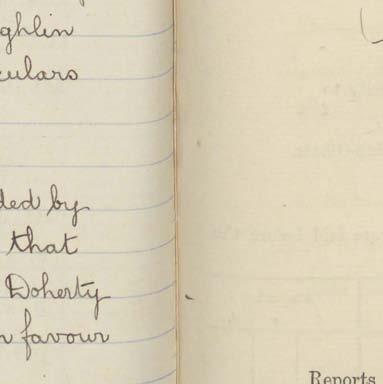 ghlin
culars
ded by
that
Doherty
favour
Reports